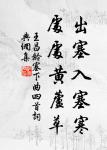 出塞入塞寒
處處黃蘆草
王昌齡塞下曲四首詞
典網集